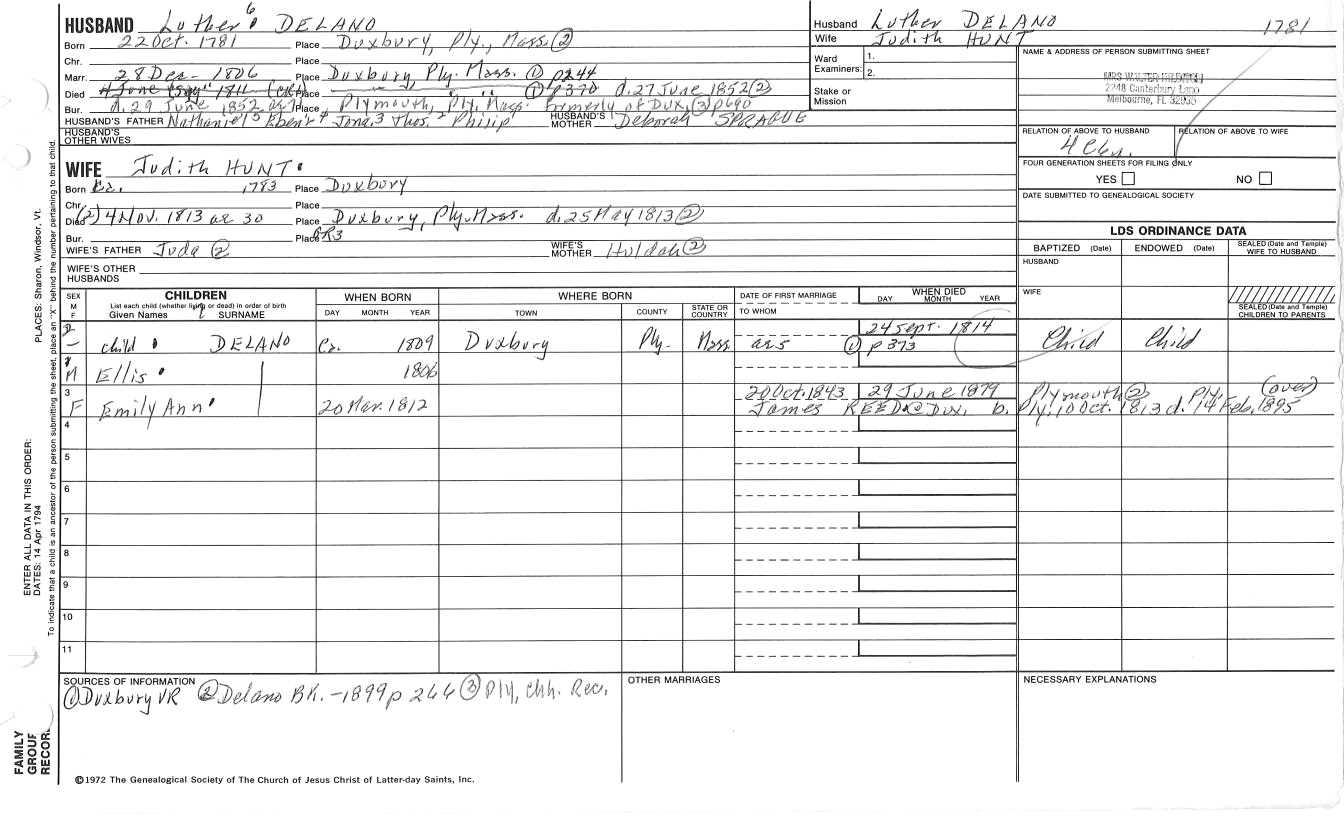 HUSBAND Luther 6 DELANO
Born 22 Oct. 1781 Place Duxbury, Ply., Mass. (2)
Chr. Place
Marr. 28 Dec - 1806 Place Duxbury Ply. Mass. (1) p244
Died 4 June 1811 Place " " " (1) p370 d. 27 June 1852 (2)
Bur. d. 29 June 1852 ae 71 Place Plymouth, Ply. Mass. formerly of Dux, (3) p690
HUSBAND'S FATHER Nathaniel 5 Eben'r 4 Jona. 3 Thos. 2 Philip 1 HUSBAND'S MOTHER Deborah SPRAGUE
HUSBAND'S OTHER WIVES
Husband Luther DELANO 1781
Wife Judith HUNT
Ward Examiners: 1.
2.
Stake or Mission
NAME & ADDRESS OF PERSON SUBMITTING SHEET
MRS WALTER
2248 Canterbury Lane
Melbourne, FL 32935
RELATION OF ABOVE TO HUSBAND RELATION OF ABOVE TO WIFE
FOUR GENERATION SHEETS FOR FILING ONLY
YES NO
DATE SUBMITTED TO GENEALOGICAL SOCIETY
WIFE Judith HUNT
Born Ca. 1783 Place Duxbury
Chr. Place
Died (2) 4 Nov. 1813 ae 30 Place Duxbury, Ply. Mass. d. 25 May 1813 (2)
Bur. Place GR3
WIFE'S FATHER Juda (2) WIFE'S MOTHER Huldah (2)
WIFE'S OTHER HUSBANDS
LDS ORDINANCE DATA
BAPTIZED (Date) ENDOWED (Date) SEALED (Date and Temple) WIFE TO HUSBAND
HUSBAND
WIFE
SEALED (Date and Temple) CHILDREN TO PARENTS
SEX M F
CHILDREN
List each child (whether living or dead) in order of birth
Given Names SURNAME
WHEN BORN
DAY MONTH YEAR
WHERE BORN
TOWN COUNTY STATE OR COUNTRY
DATE OF FIRST MARRIAGE
TO WHOM
WHEN DIED
DAY MONTH YEAR
24 Sept. 1814
child DELANO Ca. 1809 Duxbury Ply. Mass ae 5 (1) p 373 Child Child
M Ellis 1806
3 20 Oct. 1843 29 June 1879 Plymouth (2) Ply. (over)
F Emily Ann 20 Mar. 1812 James REED (2) Dux, b. Ply. 10 Oct. 1813 d. 14 Feb, 1895
4
5
6
7
8
9
10
11
SOURCES OF INFORMATION
(1) Duxbury VR (2) Delano BK. - 1899 p 266 (3) Ply, Chh. Rec.
OTHER MARRIAGES
NECESSARY EXPLANATIONS
©1972 The Genealogical Society of The Church of Jesus Christ of Latter-day Saints, Inc.
FAMILY GROUP RECORD
ENTER ALL DATA IN THIS ORDER:
DATES: 14 Apr 1794
PLACES: Sharon, Windsor, Vt.
To indicate that a child is an ancestor of the person submitting the sheet, place an "X" behind the number pertaining to that child.